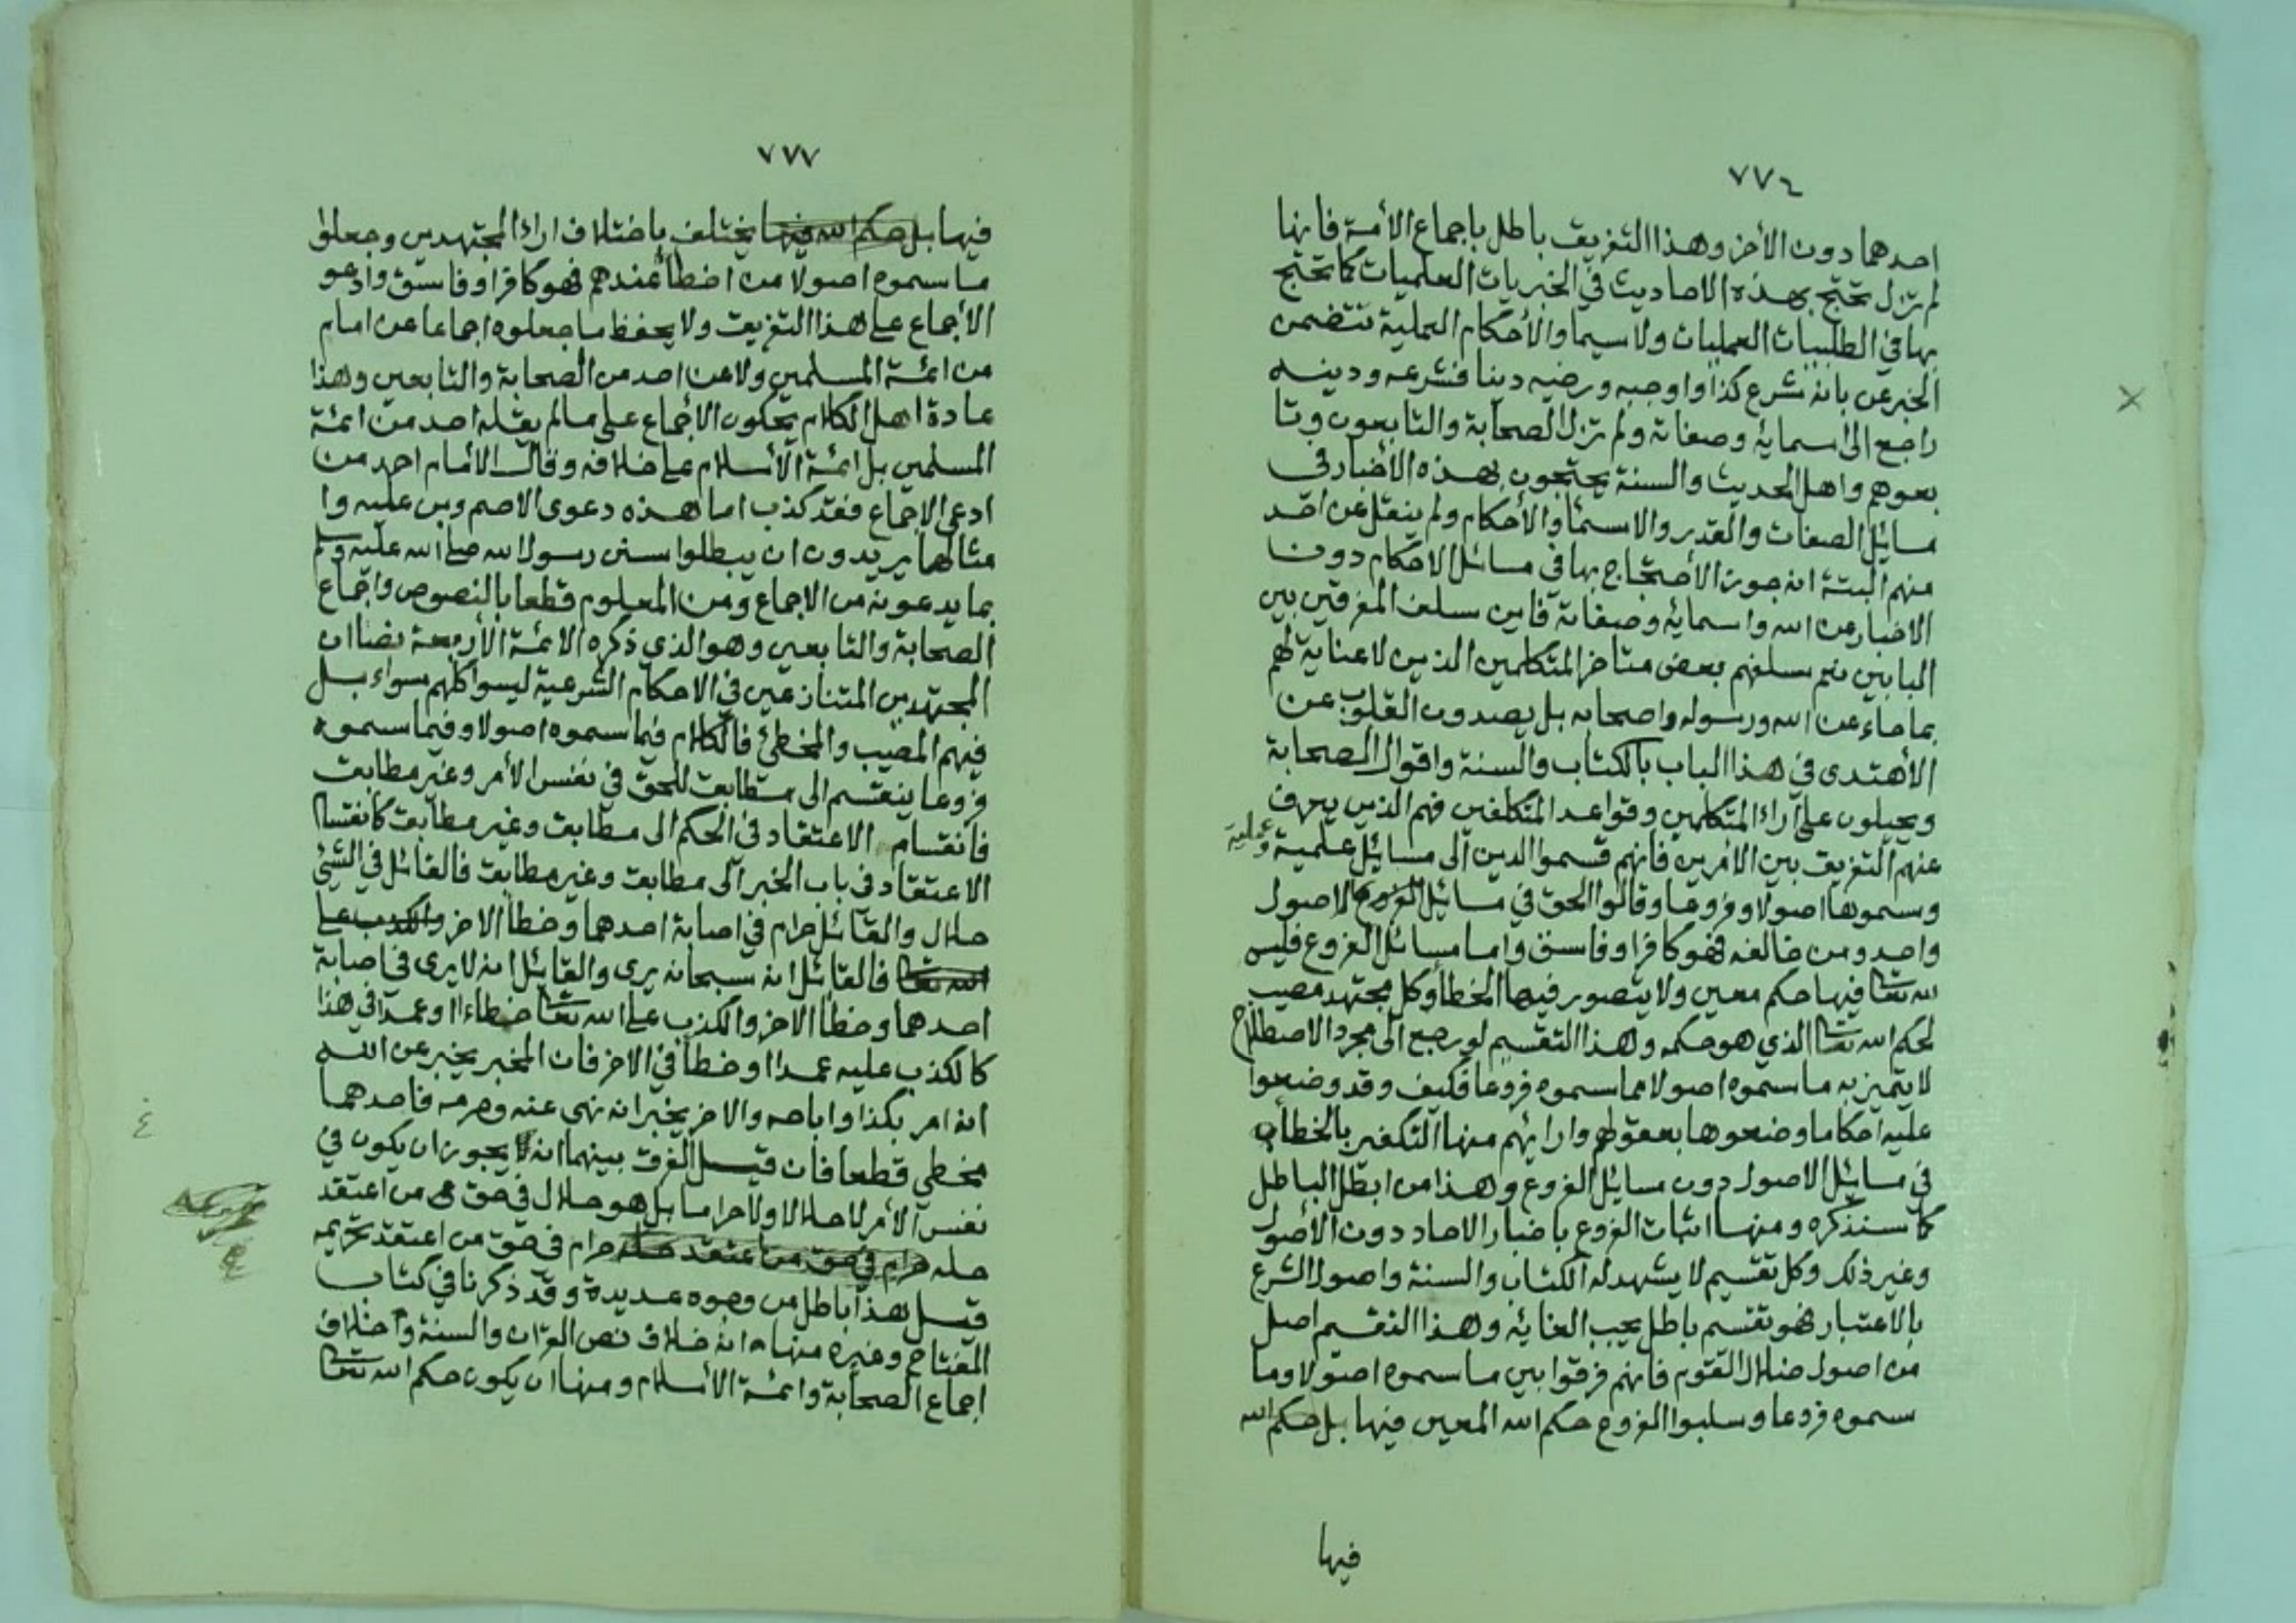 ٧٧٦
احدهما دون الأخر وهذا التفريق باطل باجماع الأمة فانها
لم تزل تحتج بهذه الاحاديث في الخبريات العلميات كما تحتج
بها في الطلبيات العمليات ولا سيما والأحكام العملية تتضمن
الخبر عن بانه شرع كذا واوجبه ورضيه دينا فشرعه ودينه
راجع الى اسمائه وصفاته ولم تزل الصحابة والتابعون وتا
بعوهم واهل الحديث والسنة يحتجون بهذه الأخبار في
مسائل الصفات والقدر والاسماء والأحكام ولم ينقل عن احد
منهم البتة انه جوز الأحتجاج بها في مسائل الاحكام دون
الاخبار عن الله واسمائه وصفاته فاين سلف المفرقين بين
البابين نعم سلفهم بعض متاخر المتكلمين الذين لا عناية لهم
بما جاء عن الله ورسوله واصحابه بل يصدون القلوب عن
الأهتدى في هذا الباب بالكتاب والسنة واقوال الصحابة
ويحيلون على آراء المتكلمين وقواعد المتكلفين فهم الذين يعرف
عنهم التفريق بين الامرين فانهم قسموا الدين الى مسائيل علمية وعملية
وسموها اصولا وفروعا وقالوا الحق في مسائيل الاصول
واحد ومن خالفه فهو كافر او فاسق واما مسائل الفروع فليس
لله تعالى فيها حكم معين ولا يتصور فيها الخطأ وكل مجتهد مصيب
لحكم الله تعالى الذي هو حكمه وهذا التقسيم لو رجع الى مجرد الاصطلاح
لا يتميز به ما سموه اصولا مما سموه فروعا فكيف وقد وضعوا
عليه احكاما وضعوها بعقولهم وارائهم منها التكفير بالخطأ
في مسائيل الاصول دون مسائيل الفروع وهذا من ابطل الباطل
كما سنذكره ومنها اثبات الفروع باخبار الاحاد دون الأصول
وغير ذلك وكل تقسيم لا يشهد له الكتاب والسنة واصول الشرع
بالاعتبار فهو تقسيم باطل يجب الغائه وهذا التقسيم اصل
من اصول ضلال القوم فانهم فرقوا بين ما سموه اصولا وما
سموه فروعا وسلبوا الفروع حكم الله المعين فيها بل حكم الله
فيها
٧٧٧
فيها بل حكم الله فيها يختلف باختلاف اراء المجتهدين وجعلوا
ما سموه اصولا من اخطأ عندهم فهو كافر او فاسق وادعو
الأجماع على هذا التفريق ولا يحفظ ما جعلوه اجماعا عن امام
من ائمة المسلمين ولا عن احد من الصحابة والتابعين وهذا
عادة اهل الكلام يحكون الاجماع على ما لم يقله احد من ائمة
المسلمين بل ائمة الأسلام على خلافه وقال الأمام احمد من
ادعى الاجماع فقد كذب اما هذه دعوى الاصم وبن عليه وا
مثالهما يريدون ان يبطلوا سنن رسول الله صلى الله عليه وسلم
بما يدعونه من الاجماع ومن المعلوم قطعا بالنصوص واجماع
الصحابة والتابعين وهو الذي ذكره الائمة الأربعة نصا ان
المجتهدين المتنازعين في الاحكام الشرعية ليسوا كلهم سواء بل
فيهم المصيب والمخطئ فالكلام فيما سموه اصولا وفيما سموه
فروعا ينقسم الى مطابق للحق في نفس الأمر وغير مطابق
فانقسام الاعتقاد في الحكم الى مطابق وغير مطابق كانقسام
الاعتقاد في باب الخبر الى مطابق وغير مطابق فالقائل في الشئ
حلال والقائل حرام في اصابة احدهما وخطأ الاخر والكذب على
الله تعالى فالقائل انه سبحانه يرى والقائل انه لا يرى في اصابة
احدهما وخطأ الاخر والكذب على الله تعالى خطاءا او عمدا في هذا
كالكذب عليه عمدا او خطأ في الاخر فان المخبر يخبر عن الله
انه امر بكذا واباحه والاخر يخبر انه نهى عنه وحرمه فاحدهما
مخطي قطعا فان قيل الفرق بينهما انه لا يجوز ان يكون في
نفس الأمر لا حلالا ولا حراما بل هو حلال في حق من اعتقد
حله حرام في حق من اعتقد حله حرام في حق من اعتقد تحريمه
قيل هذا باطل من وجوه عديدة وقد ذكرنا في كتاب
المفتاح وغيره منها انه خلاف نص القران والسنة وخلاف
اجماع الصحابة وائمة الأسلام ومنها ان يكون حكم الله تعالى